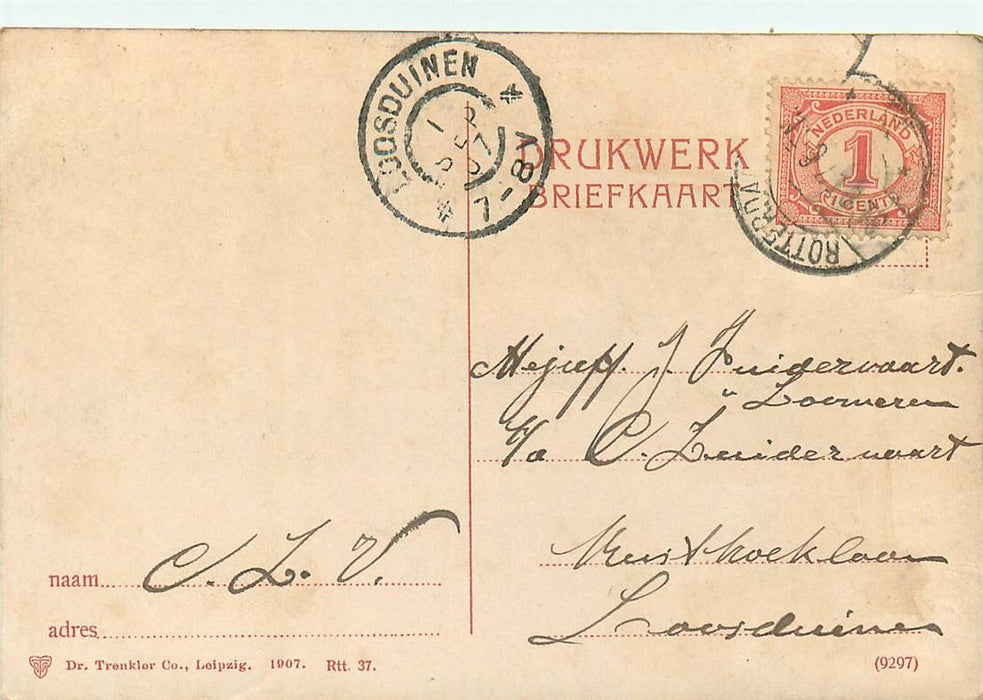 LOOSDUINEN
7-8V
DRUKWERK
BRIEFKAART
NEDERLAND
1
CENT
ROTTERDA
Mejuff. J. Zuidervaart.
" Loomeren
c/o C. Zuidervaart
Loosduinen
naam C. L. V.
adres
Dr. Trenkler Co., Leipzig. 1907. Rtt. 37.
(9297)